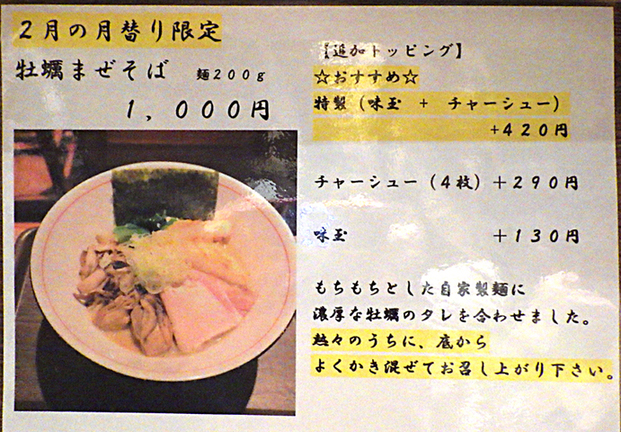 2月の月替り限定
牡蠣まぜそば 麺200g
1,000円
【追加トッピング】
☆おすすめ☆
特製(味玉 + チャーシュー)
+420円
チャーシュー(4枚)+290円
味玉 +130円
もちもちとした自家製麺に
濃厚な牡蠣のタレを合わせました。
熱々のうちに、底から
よくかき混ぜてお召し上がり下さい。